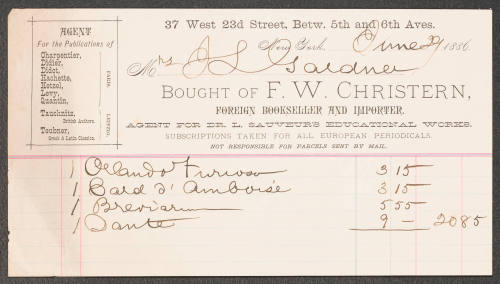 37 West 23d Street, Betw. 5th and 6th Aves.
AGENT
For the Publications of
Charpentier,
Didier,
Didot,
Hachette,
Hetzel,
Levy,
Quantin,
PARIS.
Tauchnitz,
British Authors.
Teubner,
Greek & Latin Classics.
LEIPZIG.
New York, June 29 1886.
Mrs J L Gardner
BOUGHT OF F. W. CHRISTERN,
FOREIGN BOOKSELLER AND IMPORTER.
AGENT FOR DR. L. SAUVEUR'S EDUCATIONAL WORKS.
SUBSCRIPTIONS TAKEN FOR ALL EUROPEAN PERIODICALS.
NOT RESPONSIBLE FOR PARCELS SENT BY MAIL.
1 Orlando Furioso 3 15
1 Card d'Amboise 3 15
1 Breviarium 5 55
1 Dante 9 - 20 85